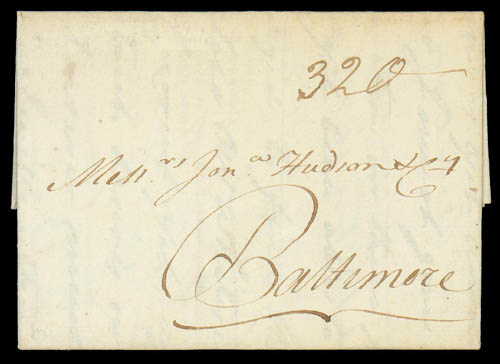 320
Mess.rs Jon.a Hudson & Co
Baltimore